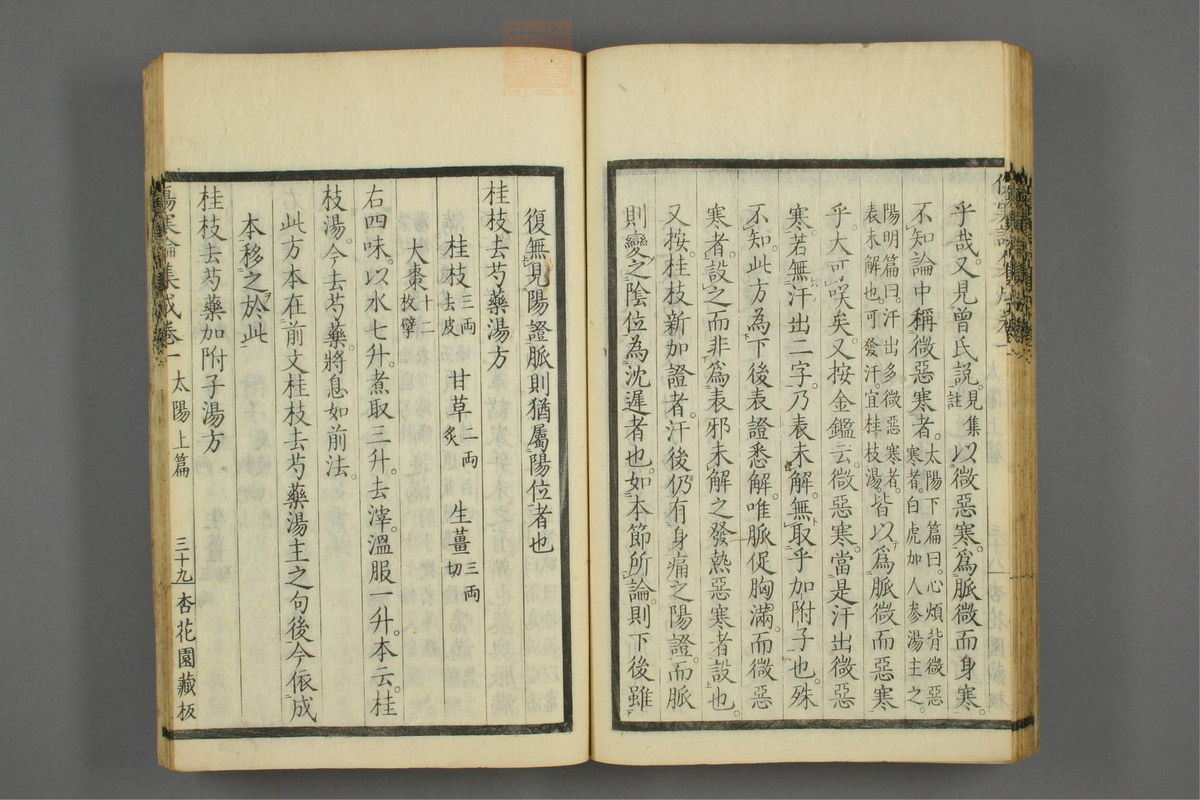 乎哉。又見曾氏說。見集註以微惡寒。為脈微而身寒。
不知論中稱微惡寒者。太陽下篇曰。心煩背微惡寒者。白虎加人參湯主之。
陽明篇曰。汗出多微惡寒者。表未解也。可發汗。宜桂枝湯。皆以為脈微而惡寒
乎。大可咲矣。又按金鑑云。微惡寒。當是汗出微惡
寒。若無汗出二字。乃表未解。無取乎加附子也。殊
不知。此方為下後表證悉解。唯脈促胸滿。而微惡
寒者。設之。而非為表邪未解之發熱惡寒者設也。
又按。桂枝新加證者。汗後仍有身痛之陽證。而脈
則變之陰位。為沈遲者也。如本節所論。則下後雖
復無見陽證脈則猶屬陽位者也
桂枝去芍藥湯方
桂枝三兩去皮 甘草二兩炙 生薑三兩切
大棗十二枚擘
右四味。以水七升。煮取三升。去滓。溫服一升。本云。桂
枝湯。今去芍藥。將息如前法。
此方本在前文桂枝去芍藥湯主之句後今依成
本移之於此
桂枝去芍藥加附子湯方
傷寒論集成卷一 太陽上篇 三十九 杏花園藏板